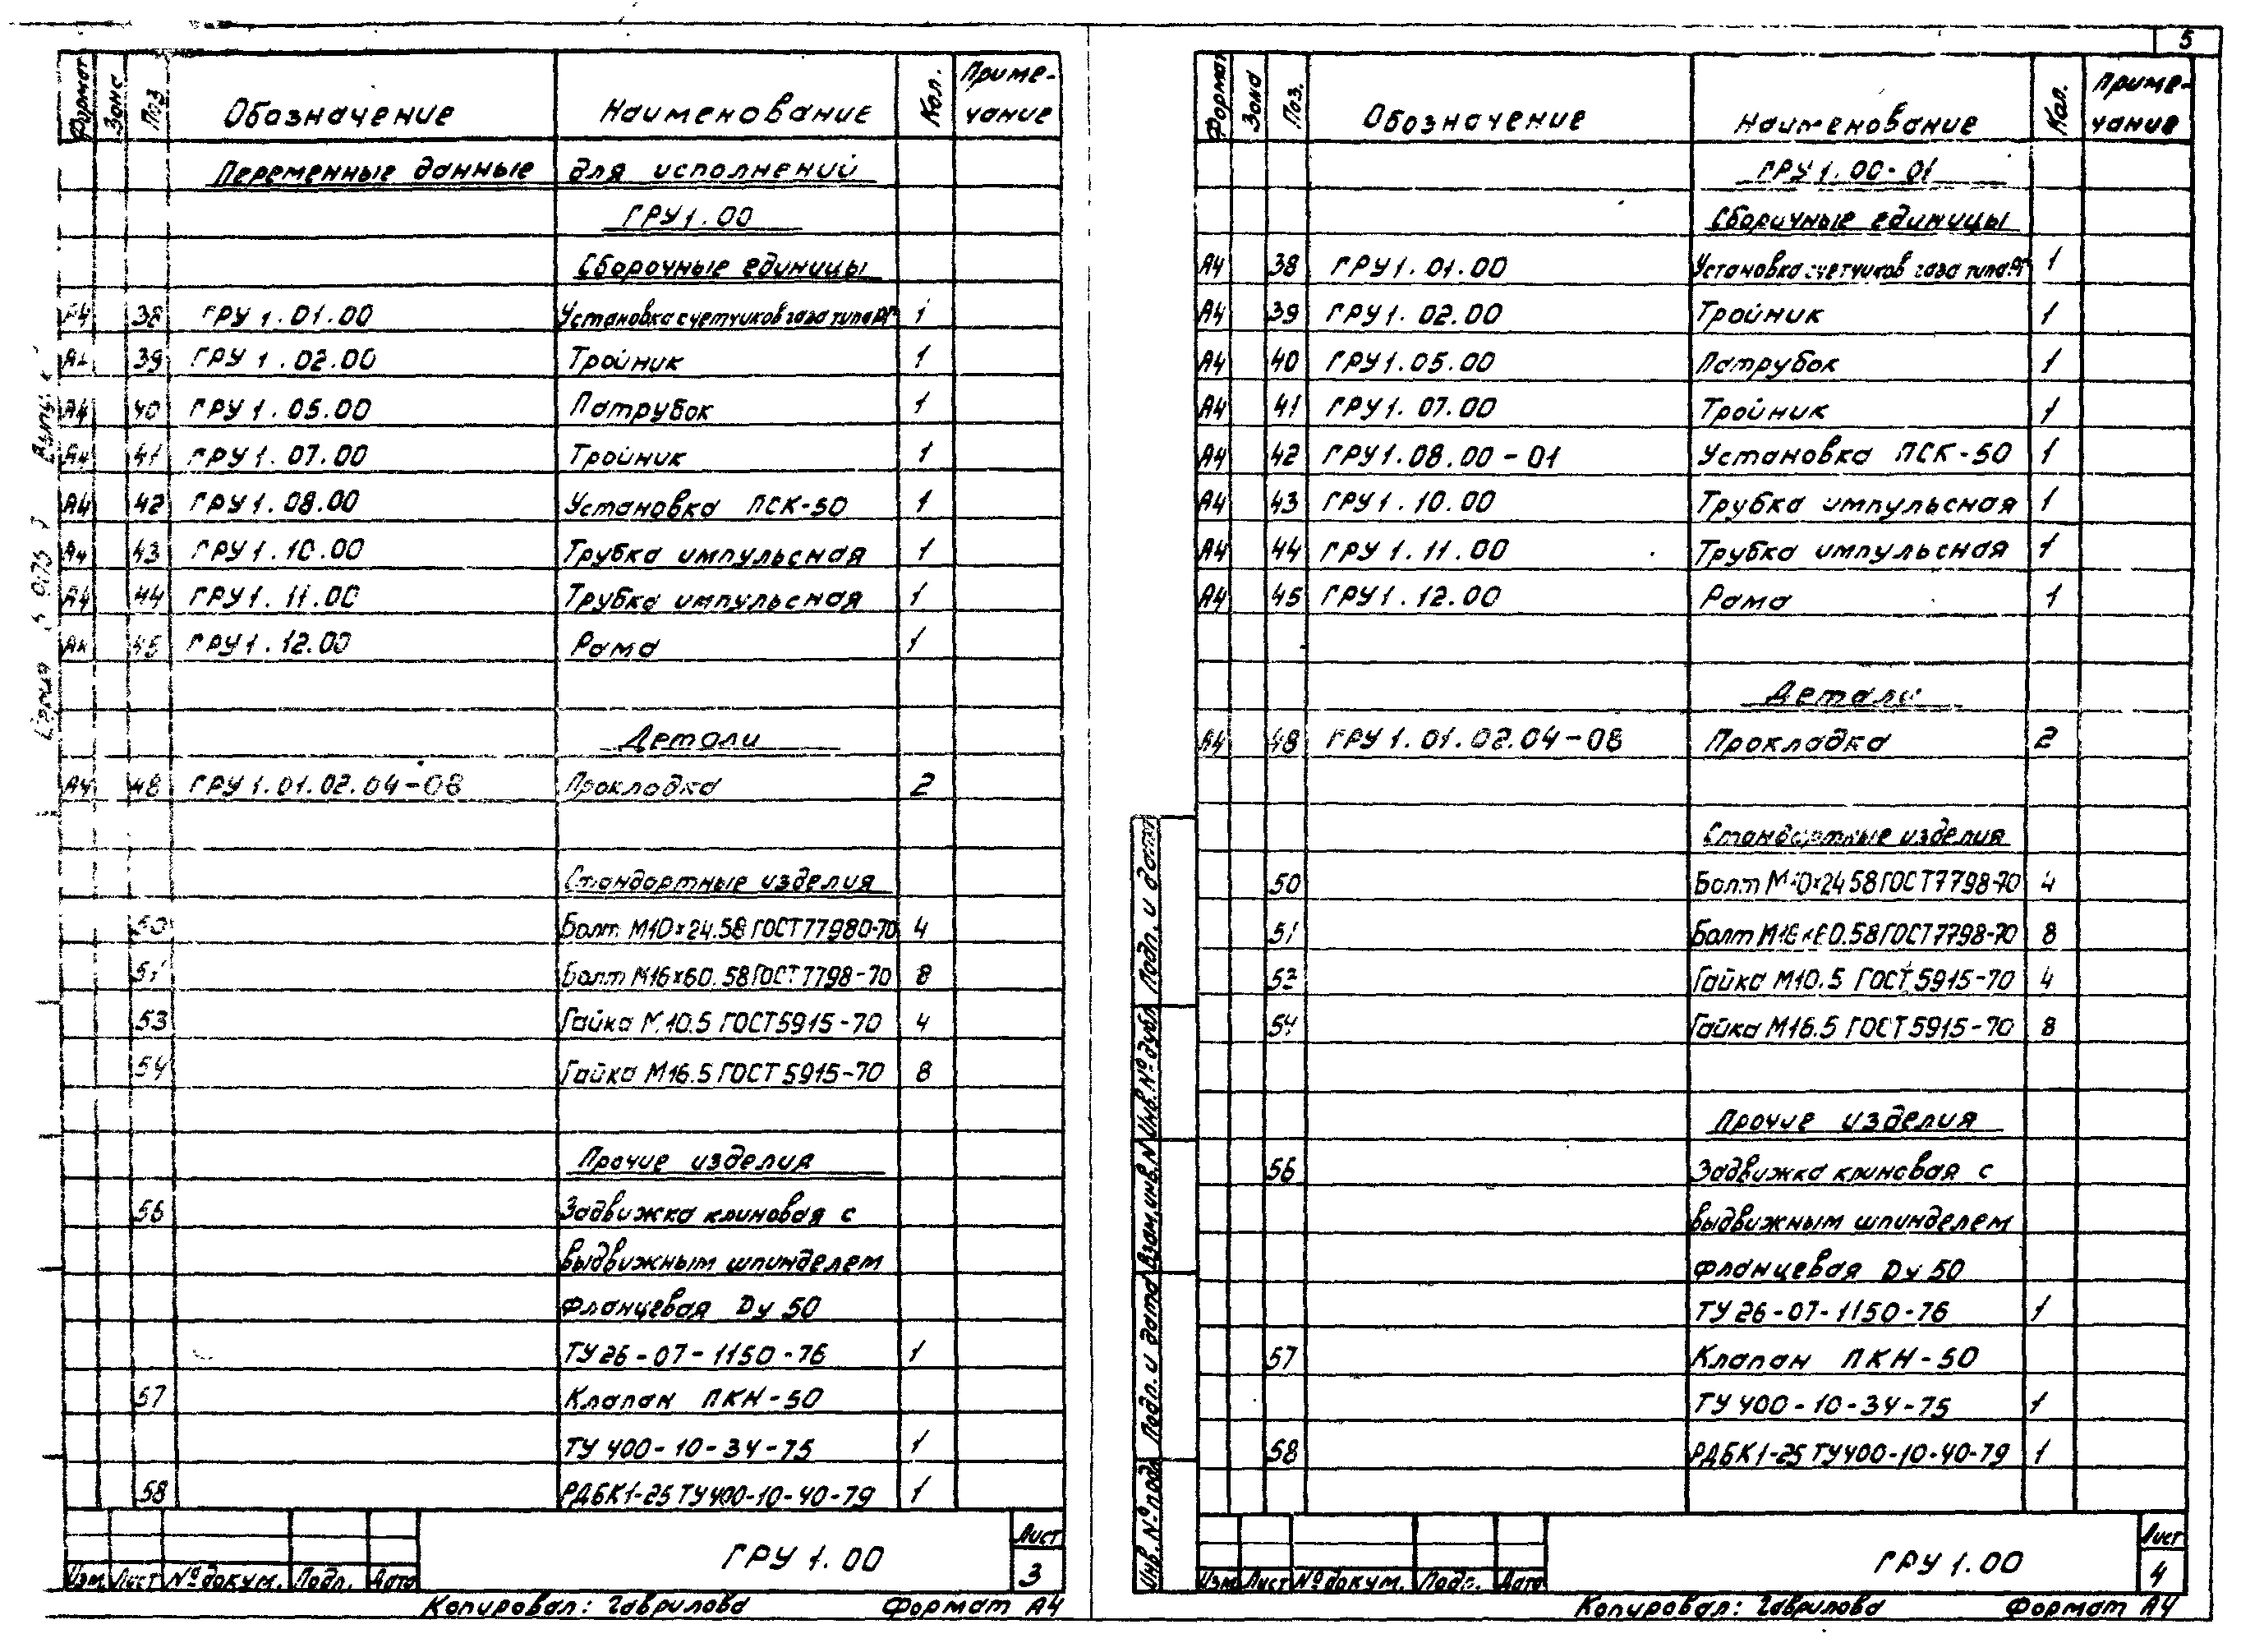 5
Формат Зона Поз Обозначение Наименование Кол. Приме-
чание
Переменные данные для исполнений
ГРУ1.00
Сборочные единицы
А4 38 ГРУ1.01.00 Установка счетчиков газа типа РГ 1
А4 39 ГРУ1.02.00 Тройник 1
А4 40 ГРУ1.05.00 Патрубок 1
А4 41 ГРУ1.07.00 Тройник 1
А4 42 ГРУ1.08.00 Установка ПСК-50 1
А4 43 ГРУ1.10.00 Трубка импульсная 1
А4 44 ГРУ1.11.00 Трубка импульсная 1
А4 45 ГРУ1.12.00 Рама 1
Детали
А4 48 ГРУ1.01.02.04-08 Прокладка 2
Стандартные изделия
50 Болт М10×24.58 ГОСТ77980-70 4
51 Болт М16×60.58 ГОСТ7798-70 8
53 Гайка М10.5 ГОСТ5915-70 4
54 Гайка М16.5 ГОСТ5915-70 8
Прочие изделия
56 Задвижка клиновая с
выдвижным шпинделем
фланцевая Dу 50
ТУ26-07-1150-76 1
57 Клапан ПКН-50
ТУ400-10-34-75 1
58 РДБК1-25 ТУ400-10-40-79 1
Изм Лист № докум. Подп. Дата
ГРУ1.00
Лист
3
Копировал: Гаврилова Формат А4
Серия Выпуск
Формат Зона Поз. Обозначение Наименование Кол. Приме-
чание
ГРУ1.00-01
Сборочные единицы
А4 38 ГРУ1.01.00 Установка счетчиков газа типа РГ 1
А4 39 ГРУ1.02.00 Тройник 1
А4 40 ГРУ1.05.00 Патрубок 1
А4 41 ГРУ1.07.00 Тройник 1
А4 42 ГРУ1.08.00-01 Установка ПСК-50 1
А4 43 ГРУ1.10.00 Трубка импульсная 1
А4 44 ГРУ1.11.00 Трубка импульсная 1
А4 45 ГРУ1.12.00 Рама 1
Детали
А4 48 ГРУ1.01.02.04-08 Прокладка 2
Стандартные изделия
50 Болт М10×24 58 ГОСТ7798-70 4
51 Болт М16×60.58 ГОСТ7798-70 8
53 Гайка М10.5 ГОСТ5915-70 4
54 Гайка М16.5 ГОСТ5915-70 8
Прочие изделия
56 Задвижка клиновая с
выдвижным шпинделем
фланцевая Dу 50
ТУ26-07-1150-76 1
57 Клапан ПКН-50
ТУ400-10-34-75 1
58 РДБК1-25 ТУ400-10-40-79 1
Инв. № подл Подп. и дата Взам. инв. № Инв. № дубл Подп. и дата
Изм Лист № докум. Подп. Дата
ГРУ1.00
Лист
4
Копировал: Гаврилова Формат А4